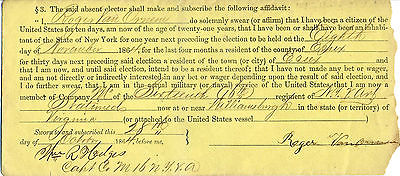 §3. The said absent elector shall make and subscribe the following affidavit:
I Roger Van Ornum do solemnly swear (or affirm) that I have been a citizen of the
United States for ten days, am now of the age of twenty-one years, that I have been or shall have been an inhabitant
of the State of New York for one year next preceding the election to be held on the Eighth
day of November 1864, for the last four months a resident of the county of Essex
for thirty days next preceding said election a resident of the town (or city) of Essex
and that I am now, and until said election, intend to be a resident thereof; that I have not made any bet or wager,
and am not directly or indirectly interested in any bet or wager depending upon the result of said election; and
I do further swear, that I am in the actual military (or naval) service of the United States; that I am now a member
of Company M of the Sixteenth (16th) regiment of N.Y. Art
Stationed now at or near Williamsburgh in the state (or territory) of
Virginia (or attached to the United States vessel
Sworn and subscribed this 28th
day of October 1864, before me
B. Hedges Roger Van Ornum
Capt Co M 16 N.Y.A